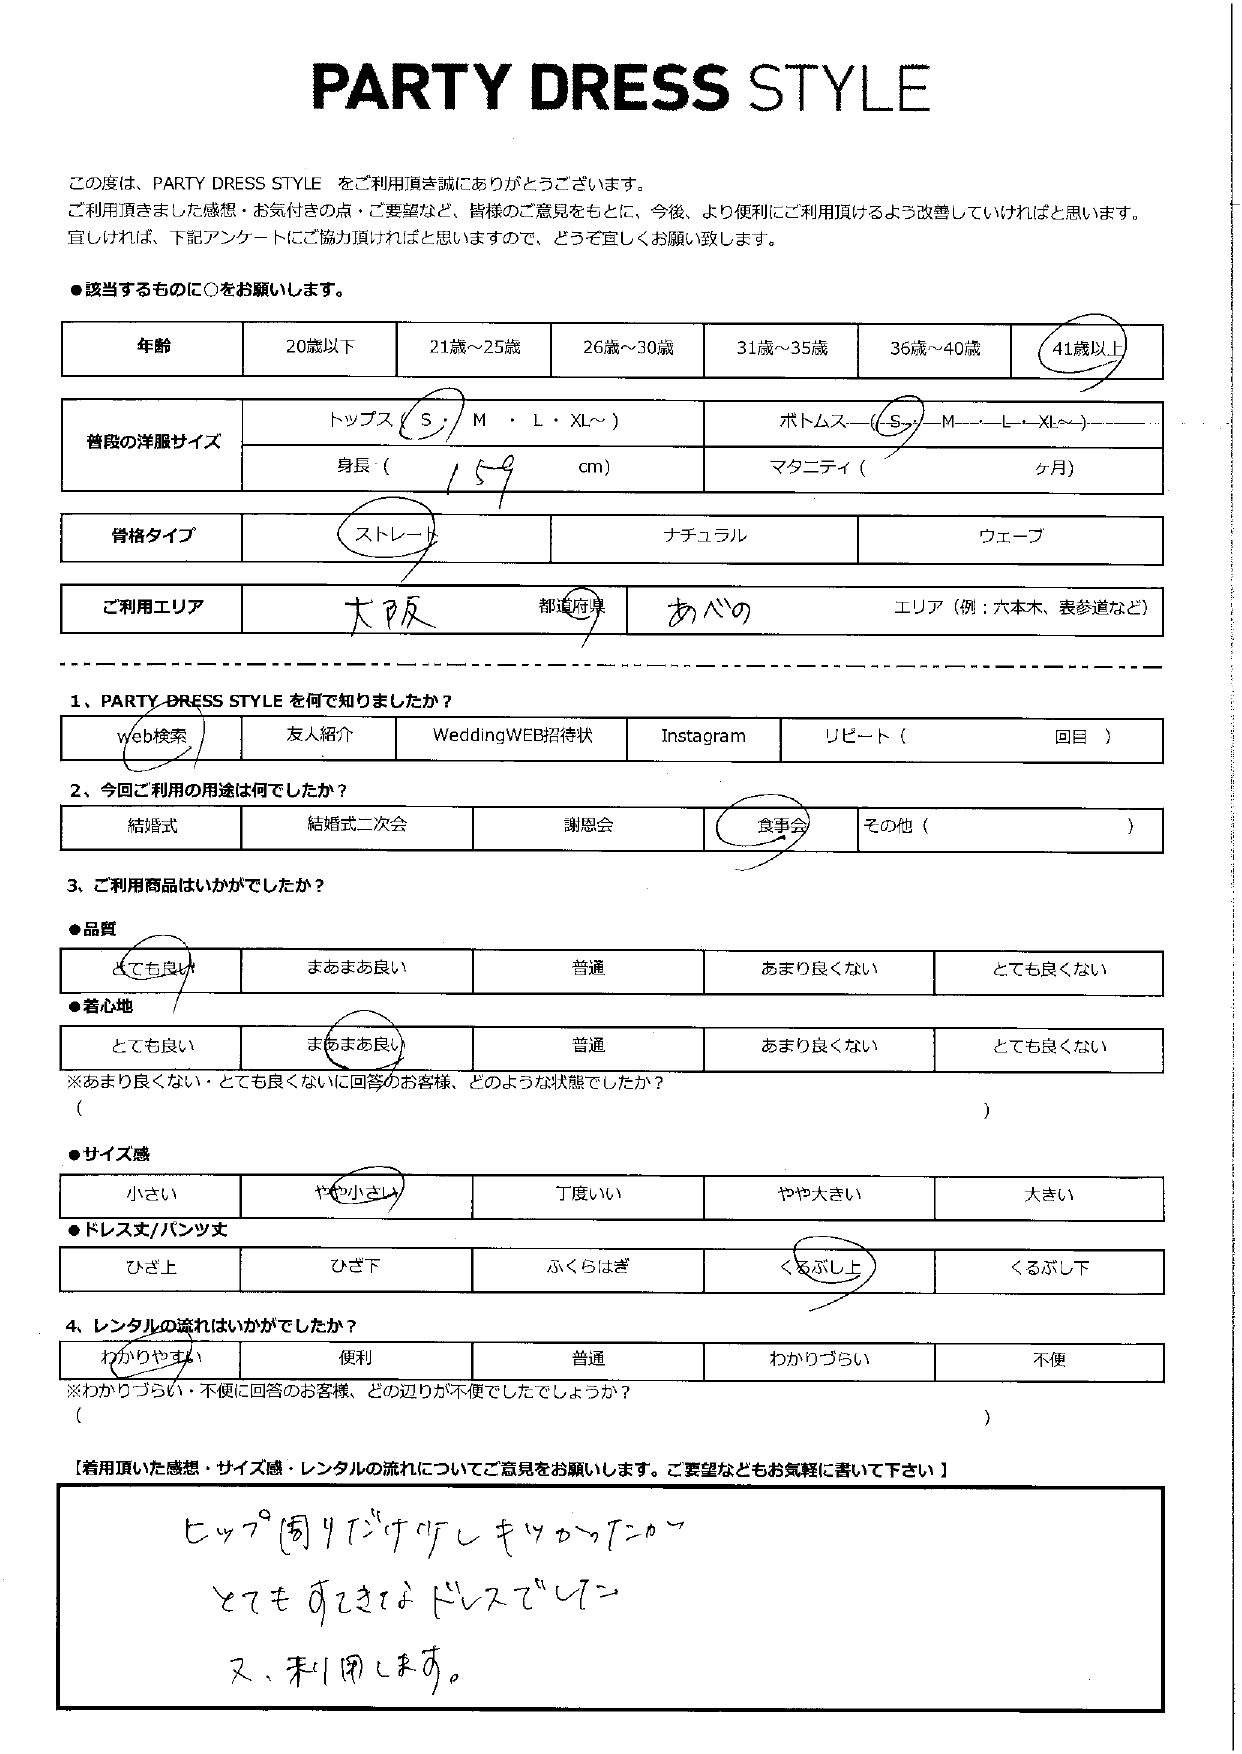 PARTY DRESS STYLE
この度は、PARTY DRESS STYLE をご利用頂き誠にありがとうございます。
ご利用頂きました感想・お気付きの点・ご要望など、皆様のご意見をもとに、今後、より便利にご利用頂けるよう改善していければと思います。
宜しければ、下記アンケートにご協力頂ければと思いますので、どうぞ宜しくお願い致します。
●該当するものに○をお願いします。
年齢 20歳以下 21歳～25歳 26歳～30歳 31歳～35歳 36歳～40歳 41歳以上
普段の洋服サイズ トップス ( S ・ M ・ L ・ XL～ ) ボトムス ( S ・ M ・ L ・ XL～ )
身長 ( 159 cm) マタニティ ( ヶ月)
骨格タイプ ストレート ナチュラル ウェーブ
ご利用エリア 大阪 都道府県 あべの エリア（例：六本木、表参道など）
1、PARTY DRESS STYLE を何で知りましたか？
web検索 友人紹介 WeddingWEB招待状 Instagram リピート（ 回目 ）
2、今回ご利用の用途は何でしたか？
結婚式 結婚式二次会 謝恩会 食事会 その他（ ）
3、ご利用商品はいかがでしたか？
●品質
とても良い まあまあ良い 普通 あまり良くない とても良くない
●着心地
とても良い まあまあ良い 普通 あまり良くない とても良くない
※あまり良くない・とても良くないに回答のお客様、どのような状態でしたか？
( )
●サイズ感
小さい やや小さい 丁度いい やや大きい 大きい
●ドレス丈/パンツ丈
ひざ上 ひざ下 ふくらはぎ くるぶし上 くるぶし下
4、レンタルの流れはいかがでしたか？
わかりやすい 便利 普通 わかりづらい 不便
※わかりづらい・不便に回答のお客様、どの辺りが不便でしたでしょうか？
( )
【着用頂いた感想・サイズ感・レンタルの流れについてご意見をお願いします。ご要望などもお気軽に書いて下さい 】
ヒップ周りだけ少しキツかったが
とてもすてきなドレスでした
又、利用します。